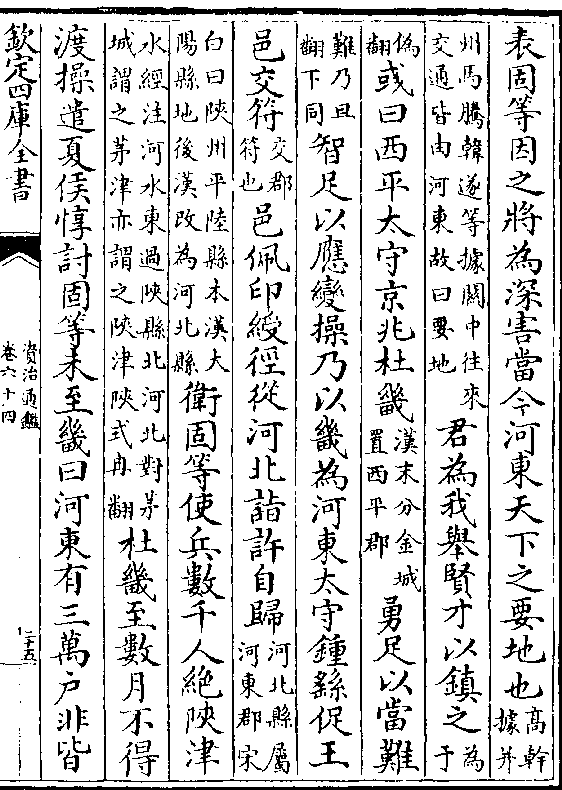 表固等因之將為深害當今河東天下之要地也高幹據并
州馬騰韓遂等據關中往來交通皆由河東故曰要地君為我舉賢才以鎮之為于
偽翻或曰西平太守京兆杜畿漢末分金城置西平郡勇足以當難
難乃旦翻下同智足以應變操乃以畿為河東太守鍾繇促王
邑交符交郡符也邑佩印綬徑從河北詣許自歸河北縣屬河東郡宋
白曰陝州平陸縣本漢大陽縣地後漢改為河北縣衛固等使兵數千人絶陝津
水經注河水東過陝縣北河北對茅城謂之茅津亦謂之陝津陝式冉翻杜畿至數月不得
渡操遣夏侯惇討固等未至畿曰河東有三萬户非皆
欽定四庫全書
資治通鑑
卷六十四
二十五